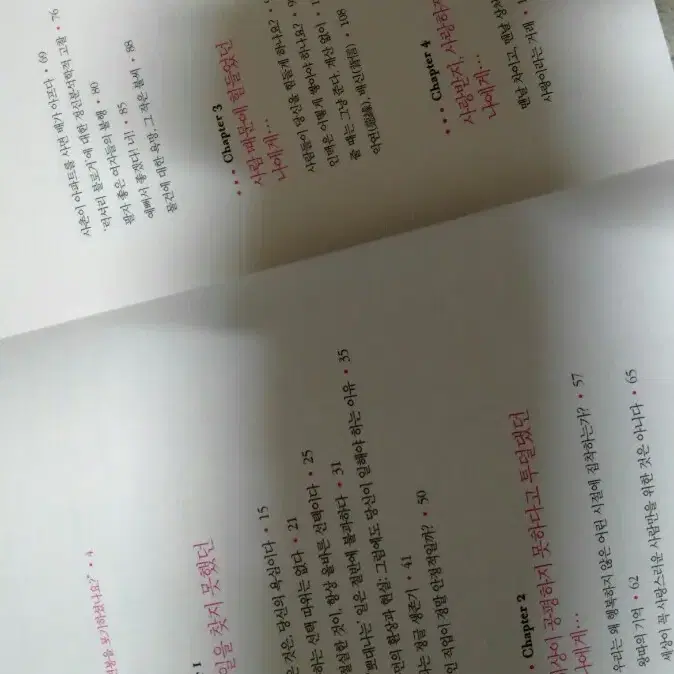 포기하셨나요?" • 4
1
일을 찾지 못했던
은 것은, 당신의 욕심이다 • 15
하는 선택 따위는 없다 • 21
절실한 것이, 항상 올바른 선택이다 • 25
'뽀대나는' 일은 절반에 불과하다 • 31
환상과 현실: 그럼에도 당신이 일해야 하는 이유 • 35
정글 생존기 • 41
직업이 정말 안정적일까? • 50
• Chapter 2
세상이 공평하지 못하다고 투덜댔던
나에게…
우리는 왜 행복하지 않은 어린 시절에 집착하는가? • 57
왕따의 기억 • 62
세상이 꼭 사랑스러운 사람만을 위한 것은 아니다 • 65
사촌이 아파트를 사면 배가 아프다 • 69
'럭셔리 블로거'에 대한 정신분석학적 고찰 • 76
팔자 좋은 여자들의 불행 • 80
예뻐서 좋겠다! 너! • 85
물건에 대한 욕망, 그 작은 불씨 • 88
••• Chapter 3
사람 때문에 힘들었던
나에게…
사람들이 당신을 힘들게 하나요? •
인맥은 어떻게 쌓아야 하나요? • 9
줄 때는 그냥 준다, 계산 없이 • 1
악연(惡緣), 배신(背信) • 108
••• Chapter 4
사랑받지, 사랑하지
나에게…
맨날 차이고, 맨날 상처
사랑이라는 거래 • 1